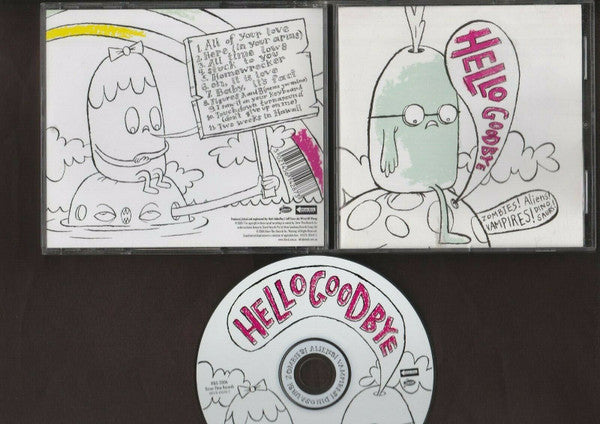 1. All of your love
2. Here (In your arms)
3. All time lows
4. Stuck to you
5. Homewrecker
6. Oh, it is love
7. Baby, it's fact
8. Figures A and B (means you and me)
9. I saw it on your keyboard
10. Touchdown turnaround
(don't give up on me)
11. Two weeks in Hawaii
HELLO GOODBYE
ZOMBIES! Aliens!
VAMPIRES! DINO
SAURS!
HELLOGOODBYE
ZOMBIES! ALIENS! VAMPIRES! DINOSAURS!